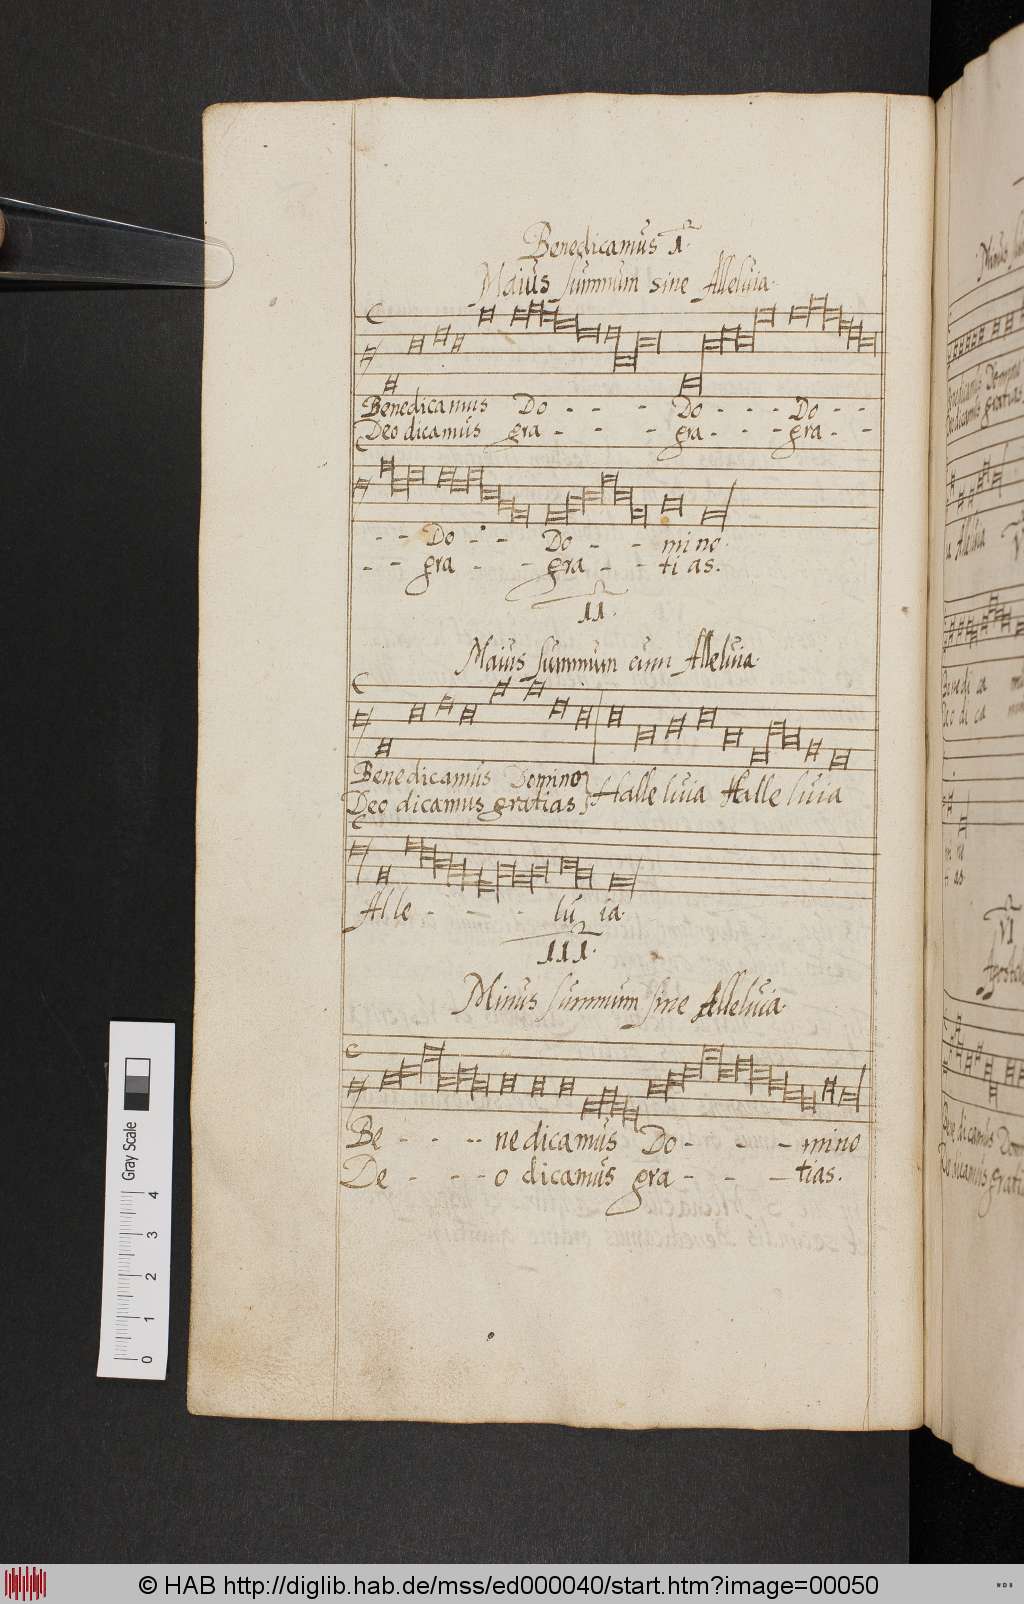 Benedicamus 1.
Maius summum sine Alleluia.
Benedicamus Do - - - Do - - - Do - -
Deo dicamus gra - - - gra - - - gra - -
- - Do - - Do - - mi no.
- - gra - - gra - - ti as.
II.
Maius summum cum Alleluia.
Benedicamus Domino } Halle luia Halle luia
Deo dicamus gratias
Alle - - - lu ia.
III.
Minus summum sine Alleluia.
Be - - - - ne dicamus Do - - - mino
De - - - - o dicamus gra - - - tias.
Gray Scale
0 1 2 3 4
VI
© HAB http://diglib.hab.de/mss/ed000040/start.htm?image=00050